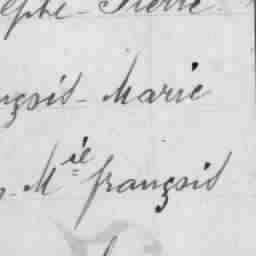 ephe - Pierre
nçois - Marie
- Mie françois